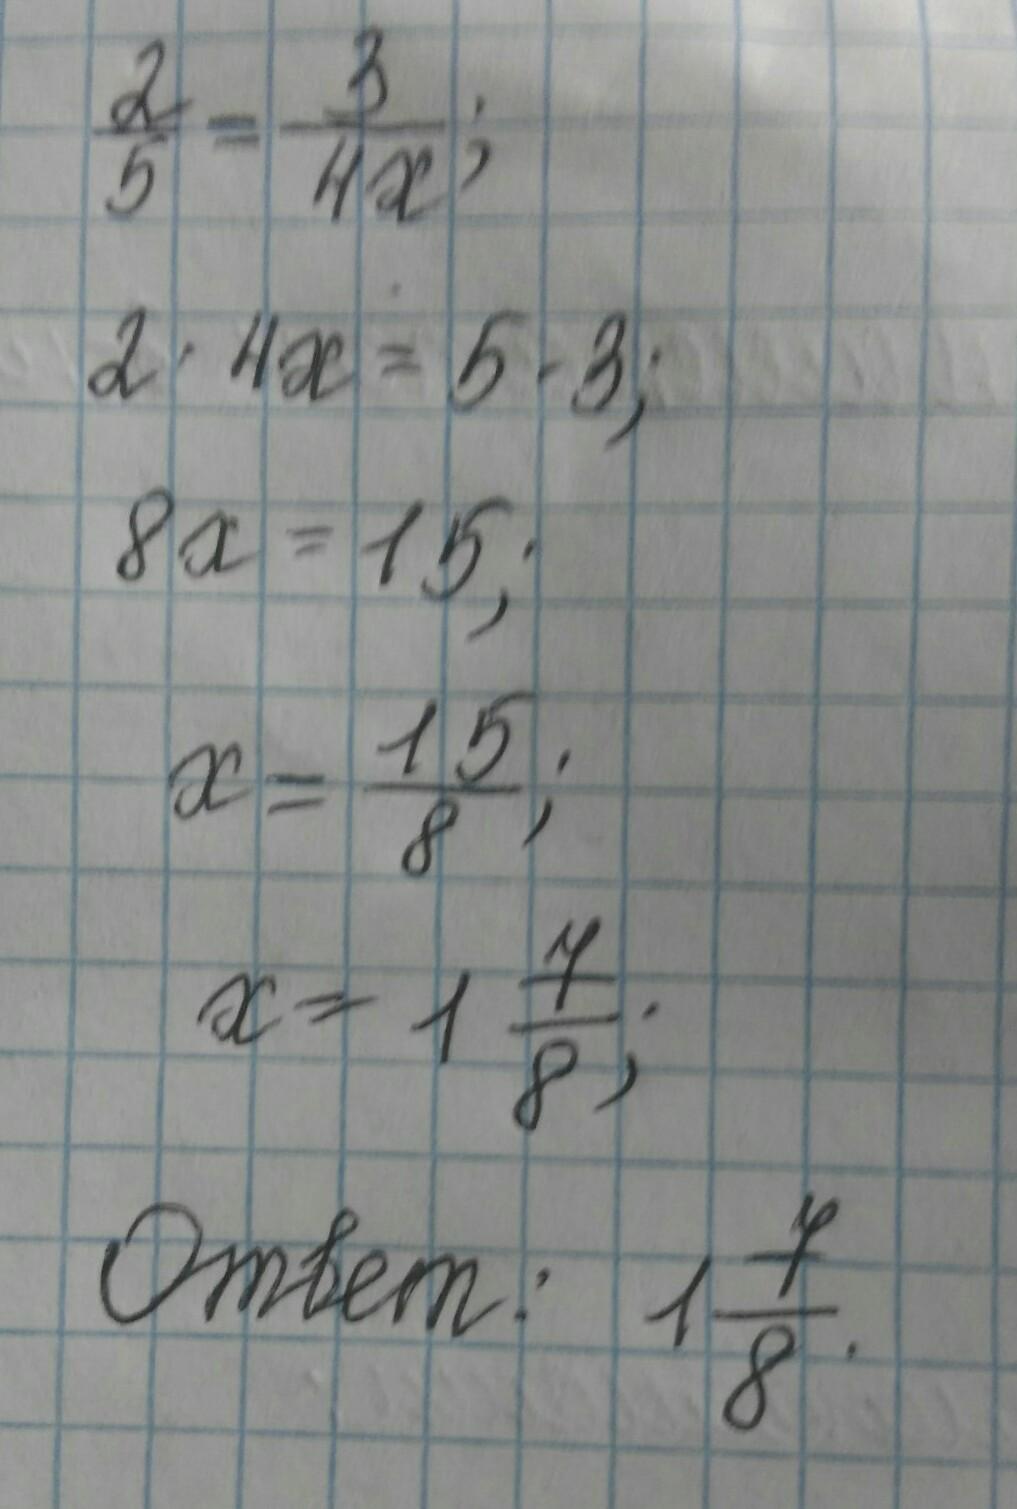 2/5 = 3/4x;
2 · 4x = 5 · 3;
8x = 15;
x = 15/8;
x = 1 7/8;
Ответ: 1 7/8.